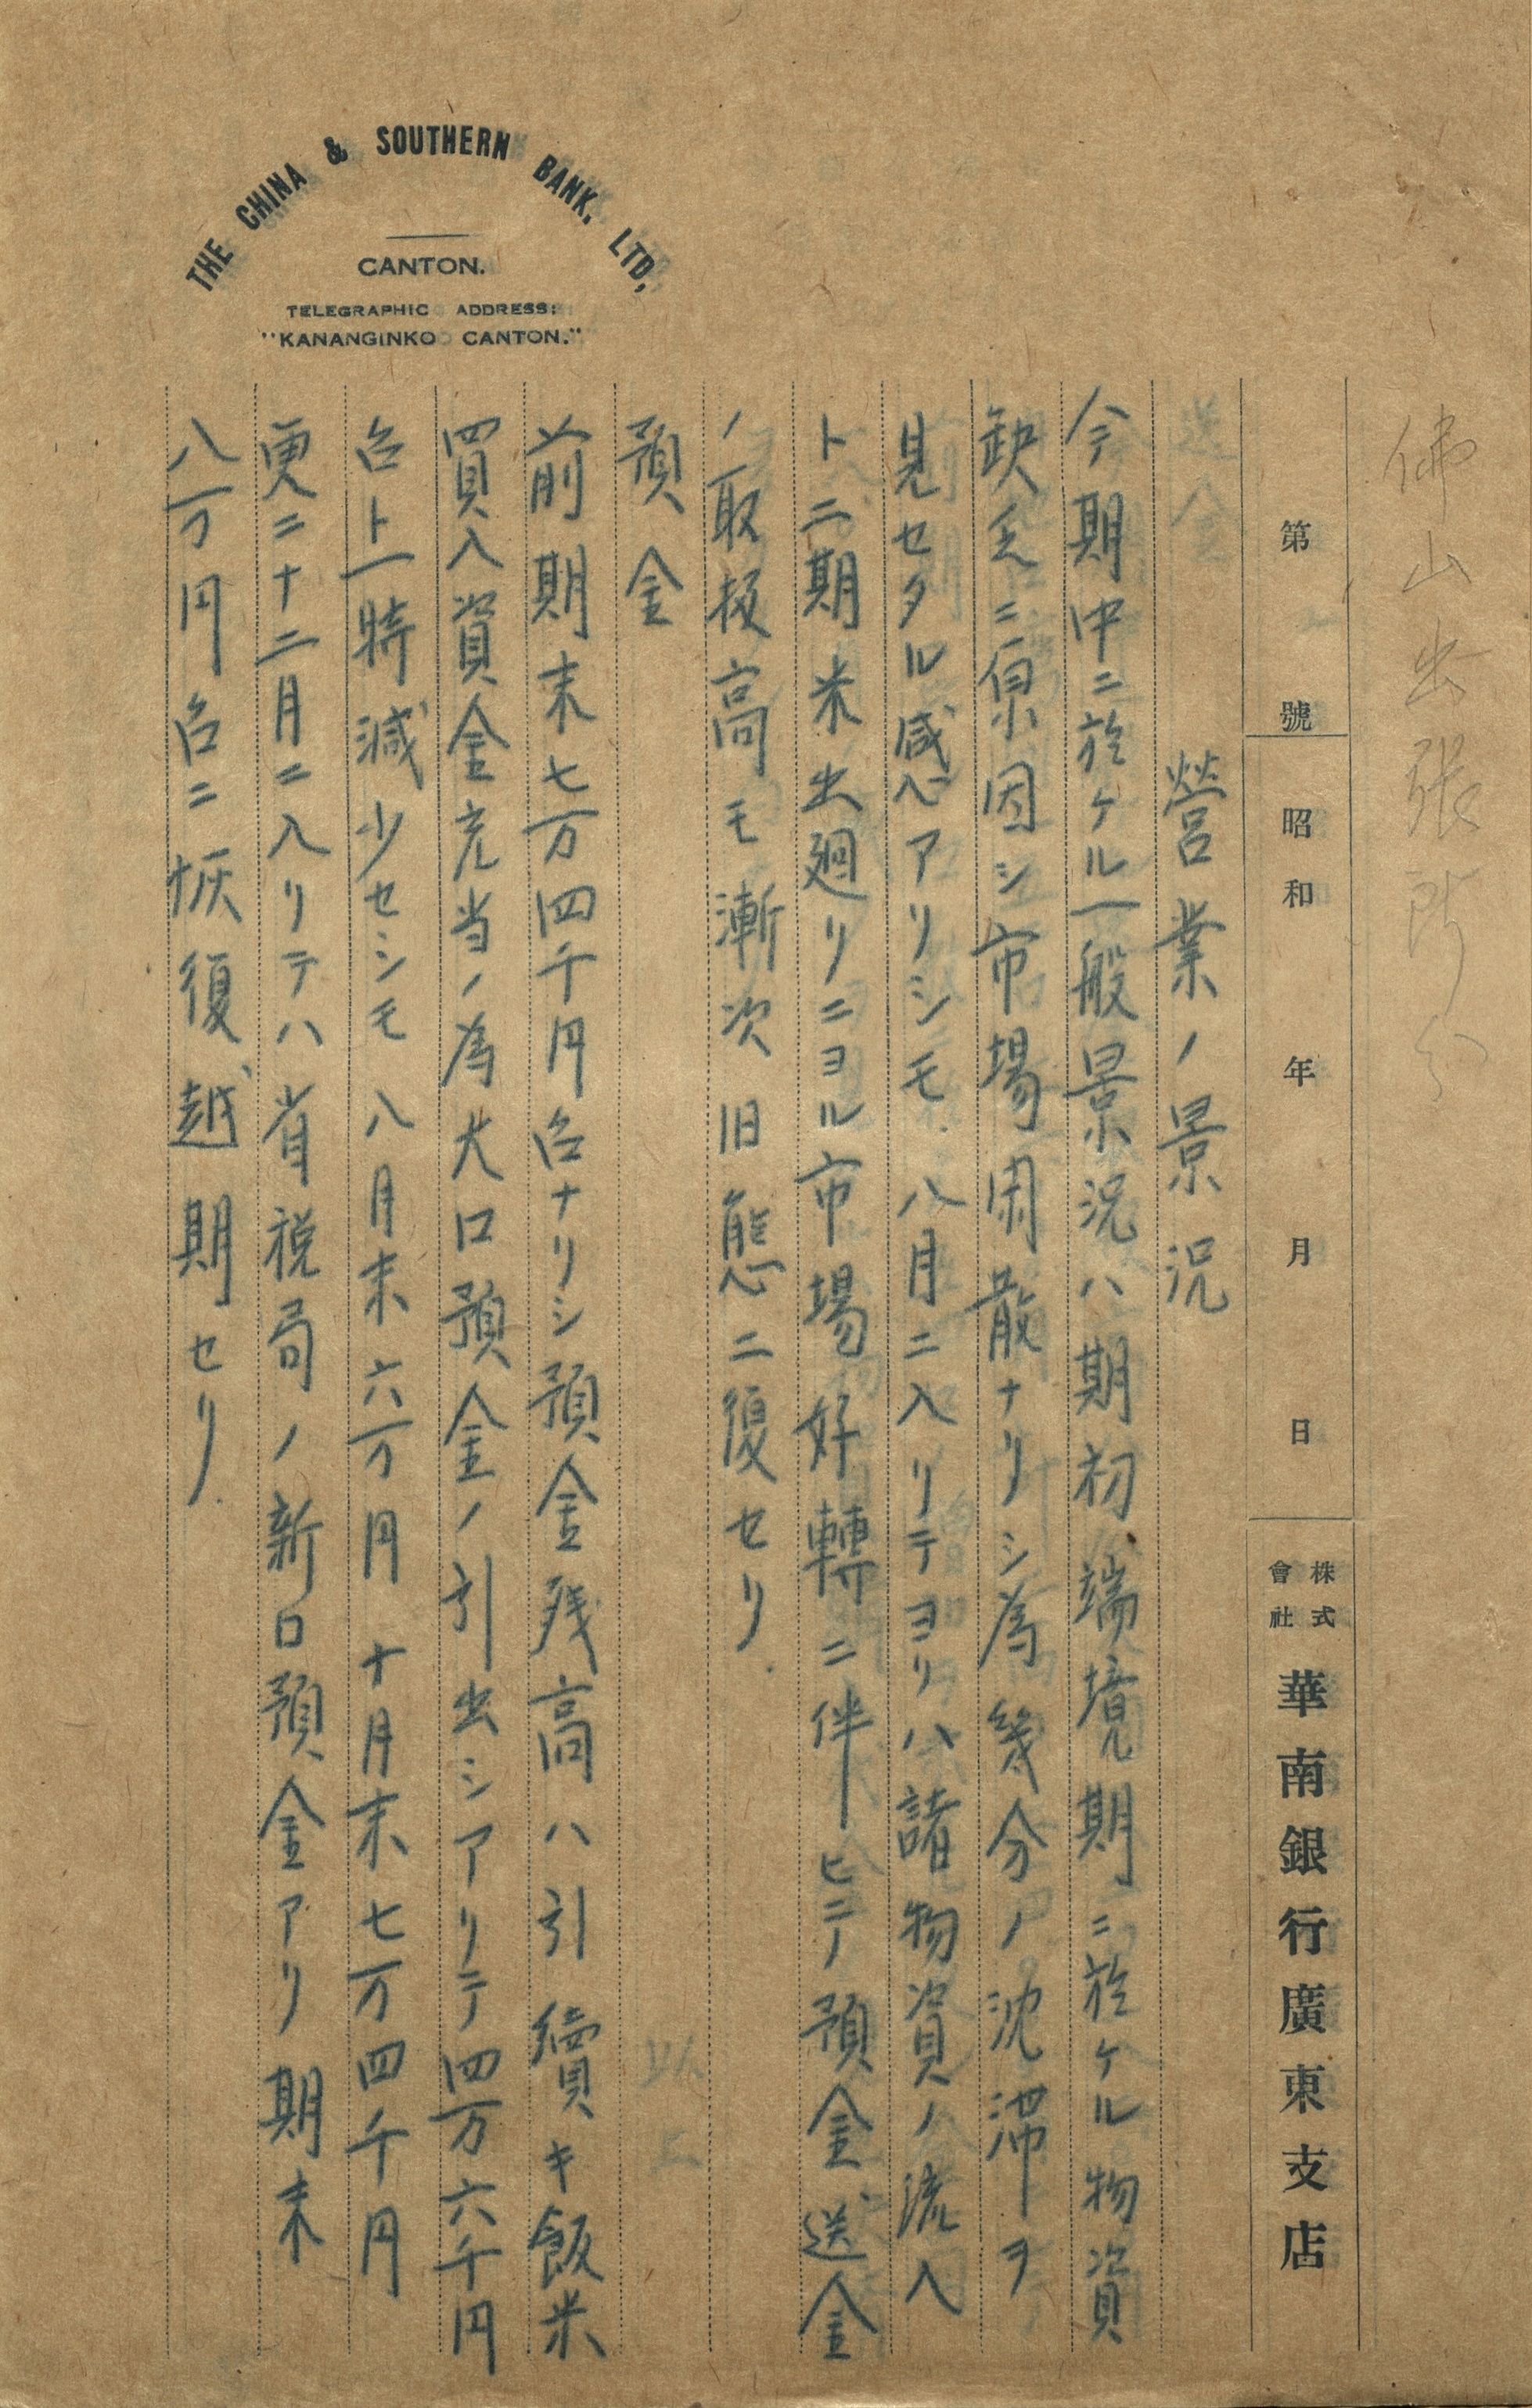 THE CHINA & SOUTHERN BANK, LTD,
CANTON.
TELEGRAPHIC ADDRESS:
"KANANGINKO CANTON."
佛山出張所分
第 號 昭和 年 月 日 株式會社 華南銀行廣東支店
營業ノ景況
今期中ニ於ケル一般景況ハ期初端境期ニ於ケル物資
缺乏ニ原因シ市場閑散ナリシ為幾分ノ沈滞ヲ
見セタル感アリシモ八月ニ入リテヨリハ諸物資ノ流入
ト二期米出廻リニヨル市場好轉ニ伴ヒ預金送金
ノ取扱高モ漸次旧態ニ復セリ
預金
前期末七万四千円台ナリシ預金残高ハ引續キ飯米
買入資金充当ノ為大口預金ノ引出シアリテ四万六千円
台ト一時減少セシモ八月末六万円十月末七万四千円
更ニ十二月ニ入リテハ省税局ノ新口預金アリ期末
八万円台ニ恢復越期セリ